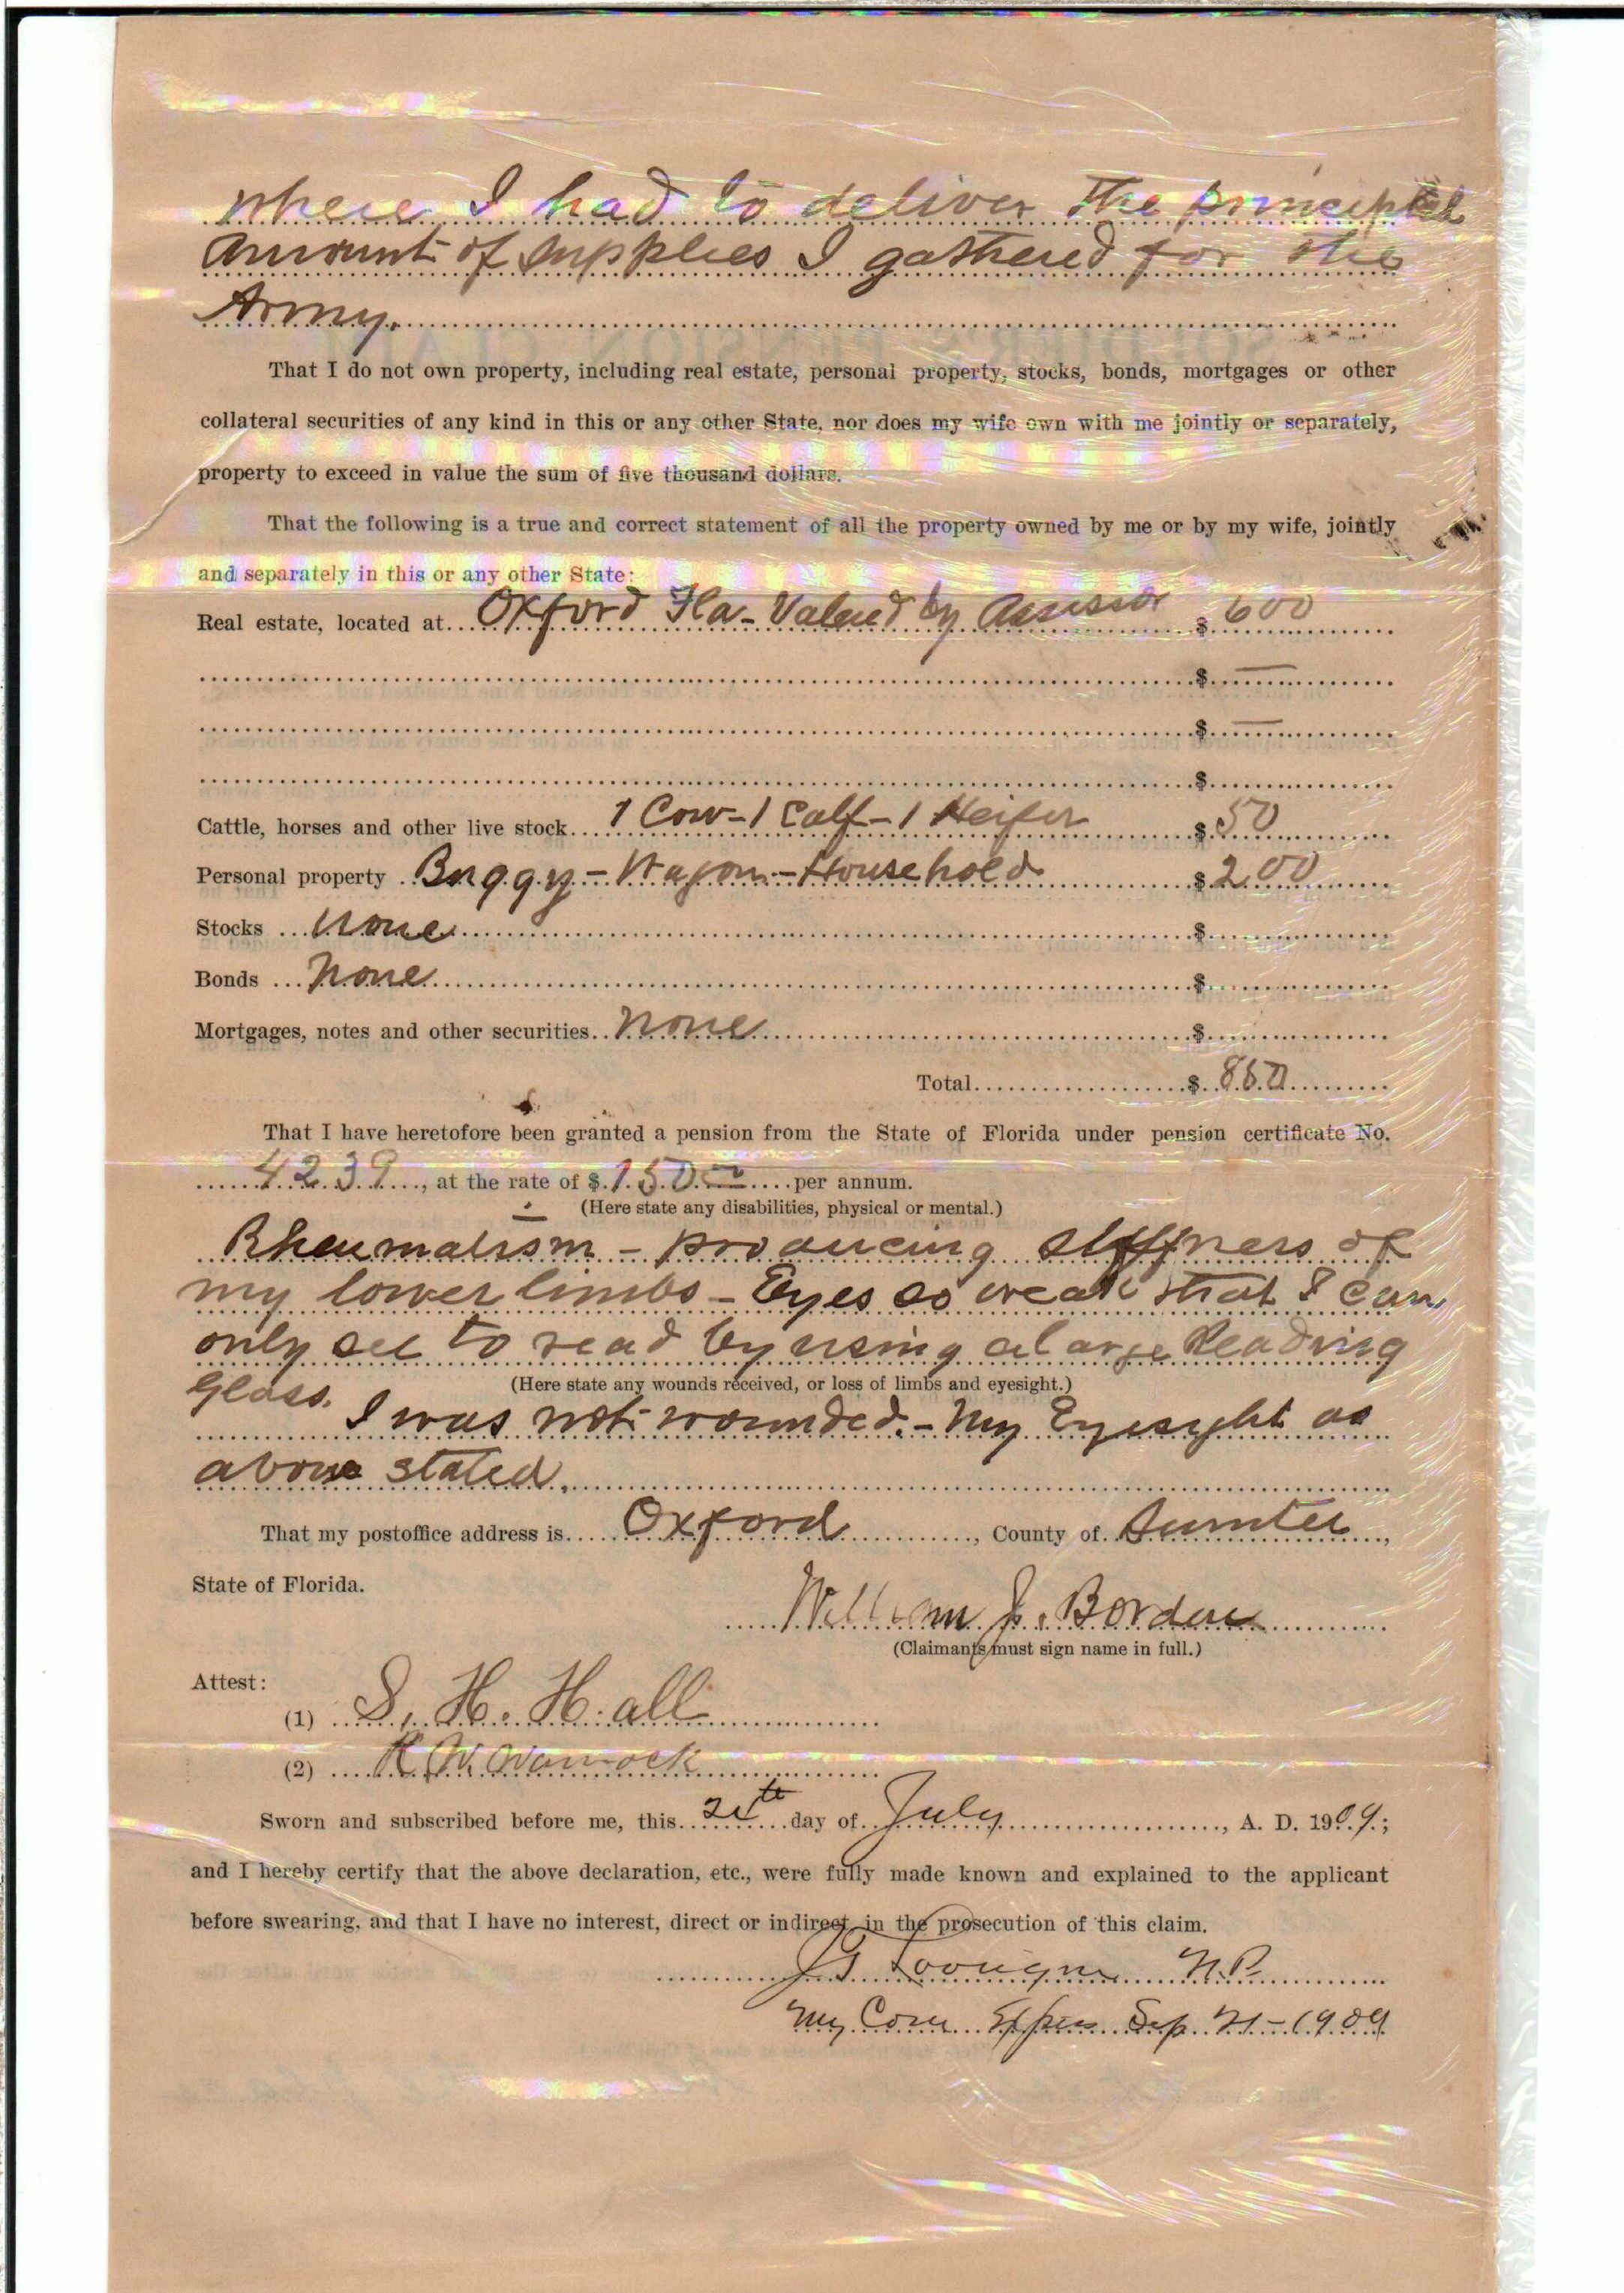 where I had to deliver the principal
amount of supplies I gathered for the
Army.
That I do not own property, including real estate, personal property, stocks, bonds, mortgages or other
collateral securities of any kind in this or any other State, nor does my wife own with me jointly or separately,
property to exceed in value the sum of five thousand dollars.
That the following is a true and correct statement of all the property owned by me or by my wife, jointly
and separately in this or any other State:
Real estate, located at Oxford Fla - Valued by Assessor $ 600
$ —
$ —
$
Cattle, horses and other live stock 1 Cow - 1 Calf - 1 Heifer $ 50
Personal property Buggy - Wagon - Household $ 200
Stocks none $
Bonds none $
Mortgages, notes and other securities none $
Total $ 850
That I have heretofore been granted a pension from the State of Florida under pension certificate No.
4239, at the rate of $ 150 per annum.
(Here state any disabilities, physical or mental.)
Rheumatism - producing stiffness of
my lower limbs - Eyes so weak that I can
only see to read by using a large Reading
Glass.
(Here state any wounds received, or loss of limbs and eyesight.)
I was not wounded. - My Eyesight as
above stated.
That my postoffice address is Oxford, County of Sumter,
State of Florida.
William J. Borden
(Claimants must sign name in full.)
Attest:
(1) S. H. Hall
(2) R. W. Warnock
Sworn and subscribed before me, this day of July, A. D. 1909;
and I hereby certify that the above declaration, etc., were fully made known and explained to the applicant
before swearing, and that I have no interest, direct or indirect, in the prosecution of this claim.
N.P.
My Com Expires Sep. 21 - 1909